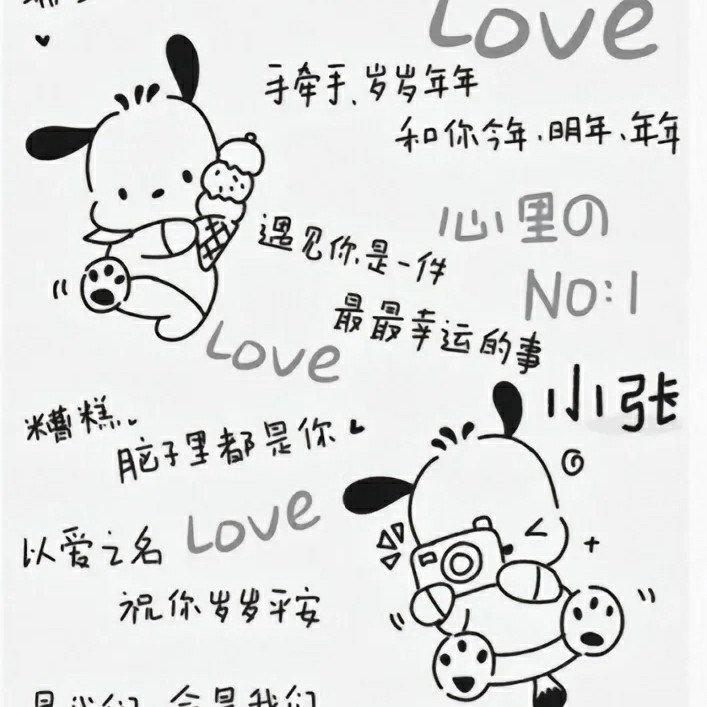 Love
手牵手、岁岁年年
和你今年、明年、年年
心里の
NO:1
遇见你是一件
最最幸运的事
Love
小张
糟糕、
脑子里都是你
Love
以爱之名
祝你岁岁平安